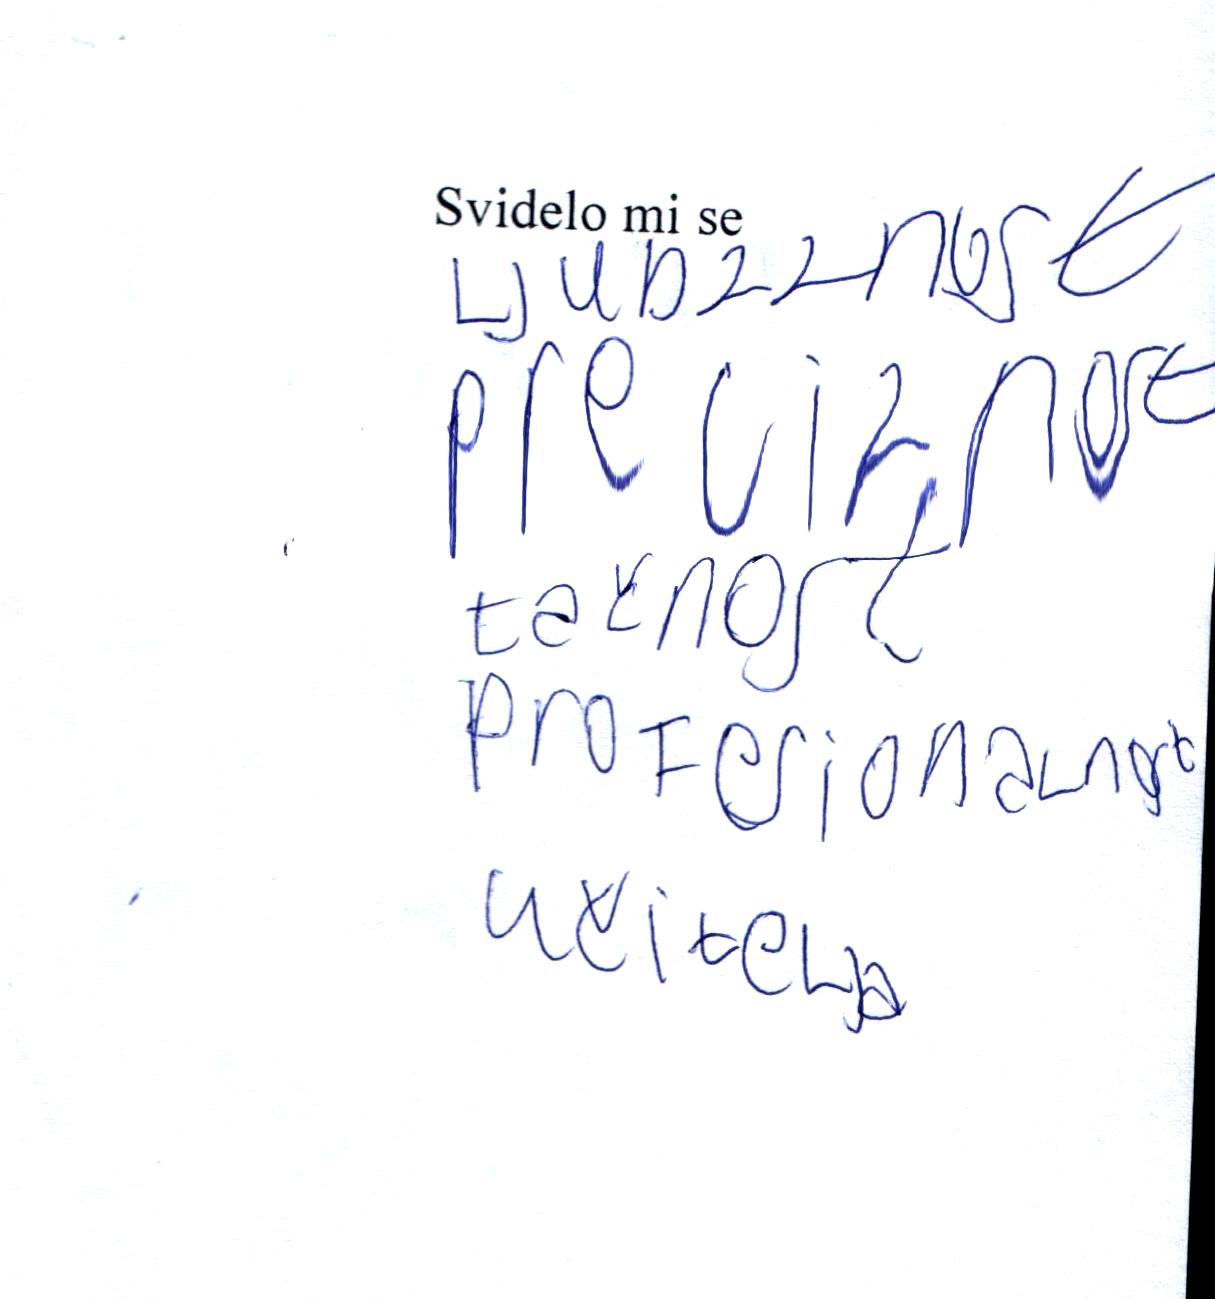 Svidelo mi se
Ljubzznost
preciznost
taknost
profesionalnost
učitelja